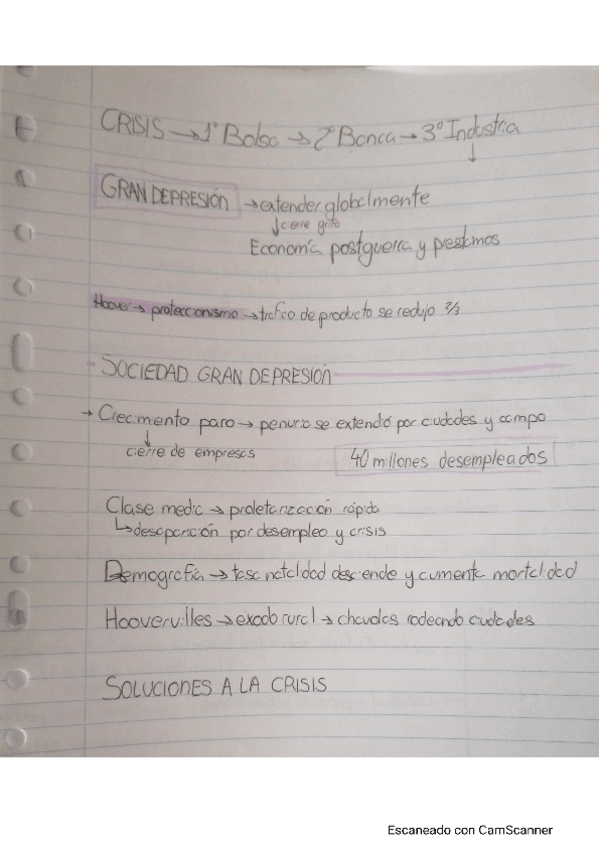 CRISIS → 1º Bolsa → 2º Banca → 3º Industria
↓
GRAN DEPRESIÓN → extender globalmente
↓ cierre grifo
Economía postguerra y prestamos
Hoover → proteccionismo → trafico de producto se redujo 2/3
- SOCIEDAD GRAN DEPRESIÓN
→ Crecimento paro → penuria se extendó por ciudades y campo
↓
cierre de empresas
40 millones desempleados
Clase media → proletarización rápida
↳ desaparición por desempleo y crisis
Demografía → tasa natalidad desciende y aumenta mortalidad
Hoovervilles → exodo rural → chavolas rodeando ciudades
SOLUCIONES A LA CRISIS
Escaneado con CamScanner